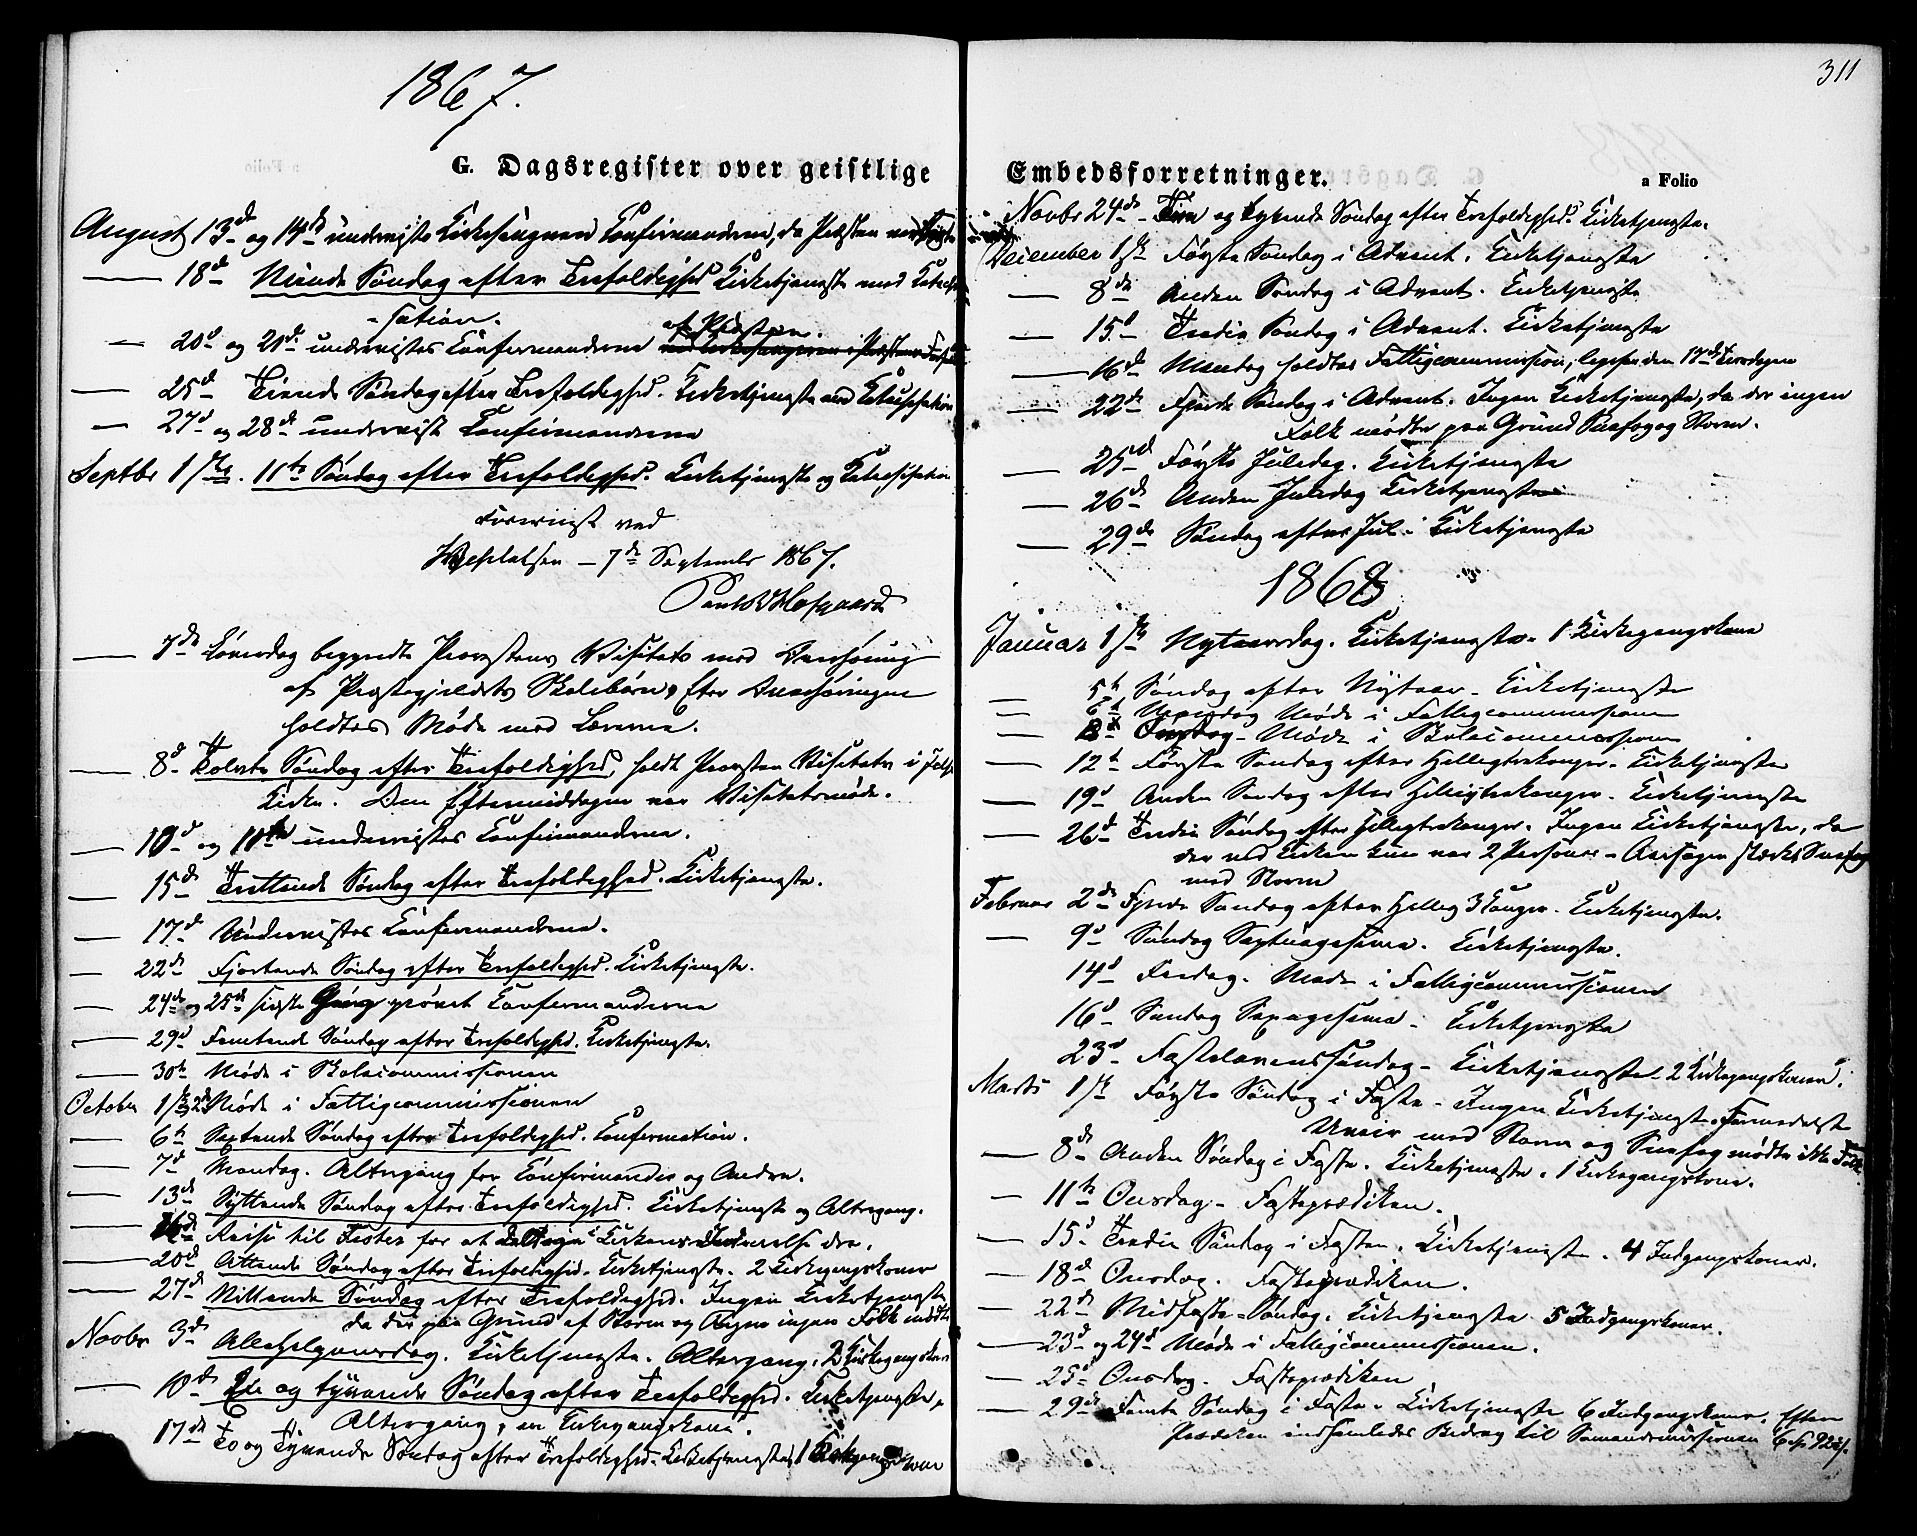 1867.
G. Dagsregister over geistlige
August 13d og 14d underviste Kirkesangeren Confirmanderne, da Præsten
— 18d Niende Søndag efter Trefoldighed Kirketjeneste med Cateche-
-sation.
af Præsten.
— 20d og 21de undervistes Confirmanderne
— 25d Tiende Søndag efter Trefoldighed. Kirketjeneste med Catechisation
— 27d og 28d undervist Confirmanderne
Septbr 1ste. 11te Søndag efter Trefoldighed. Kirketjeneste og Catechisation
Foreviist ved
7de September 1867.
— 7de Løverdag begyndte Provstens Visitats med Overhøring
af Præstegjeldets Skolebørn, Efter Overhøringen
holdtes Møde med Lærerne.
— 8d Tolvte Søndag efter Trefoldighed, holdt Provsten Visitats i
Kirke. Om Eftermiddagen var Visitatsmøde.
— 10d og 11te undervistes Confirmanderne.
— 15de Trettende Søndag efter Trefoldighed. Kirketjeneste.
— 17d Undervistes Confirmanderne.
— 22de Fjortende Søndag efter Trefoldighed. Kirketjeneste.
— 24de og 25de sidste Gang prøvet Confirmanderne
— 29d Femtende Søndag efter Trefoldighed. Kirketjeneste.
— 30te Møde i Skolecommissionen
October 1ste og 2d Møde i Fattigcommissionen
— 6te Sextende Søndag efter Trefoldighed. Confirmation.
— 7d Mandag. Altergang for Confirmander og Andre.
— 13de Syttende Søndag efter Trefoldighed. Kirketjeneste og Altergang.
— 16de Reise til for at Kirkens
— 20d Attende Søndag efter Trefoldighed. Kirketjeneste. 2 Kirkegangskoner
— 27d Nittende Søndag efter Trefoldighed. Ingen Kirketjeneste
da der paa Grund af Storm og Regn ingen Folk mødte
Novbr 3de Allehelgensdag. Kirketjeneste. Altergang, 2 Kirkegangskoner
— 10de Een og tyvende Søndag efter Trefoldighed. Kirketjeneste,
Altergang, en Kirkegangskone.
17de To og Tyvende Søndag efter Trefoldighed. Kirketjeneste, 1 Kirkegangskone
311
Embedsforretninger.
a Folio
Novbr 24de Tre og tyvende Søndag efter Trefoldighed. Kirketjeneste.
December 1ste Første Søndag i Advent. Kirketjeneste
— 8de Anden Søndag i Advent. Kirketjeneste
— 15d Tredie Søndag i Advent. Kirketjeneste
— 16de Mandag holdtes Fattigcommission, den 17de Tirsdagen
— 22de Fjerde Søndag i Advent. Ingen Kirketjeneste, da der ingen
Folk mødte paa Grund Snefog og Storm.
— 25d Første Juledag. Kirketjeneste
— 26de Anden Juledag Kirketjeneste
— 29de Søndag efter Jul. Kirketjeneste
1868
Januar 1ste Nytaarsdag. Kirketjeneste. 1 Kirkegangskone
— 5te Søndag efter Nytaar. Kirketjeneste
— 6te Mandag Møde i Fattigcommissionen
— 8de Onsdag. Møde i Skolecommissionen
— 12te Første Søndag efter Helligtrekonger. Kirketjeneste
— 19d Anden Søndag efter Helligtrekonger. Kirketjeneste
— 26d Tredie Søndag efter Helligtrekonger. Ingen Kirketjeneste, da
der ved Kirken kun var 2 Personer. Aarsagen stærkt Snefog
med Storm
Februar 2de Fjerde Søndag efter Hellig 3 Konger. Kirketjeneste.
— 9d Søndag Septuagesima. Kirketjeneste.
14d Fredag. Møde i Fattigcommissionen
16d Søndag Sexagesima. Kirketjeneste
23d Fastelavenssøndag. Kirketjeneste. 2 Kirkegangskoner.
Marts 1ste Første Søndag i Faste. Ingen Kirketjeneste. Formedelst
Uveir med Storm og Snefog mødte ikke Folk
— 8de Anden Søndag i Faste. Kirketjeneste. 1 Kirkegangskone.
— 11te Onsdag. Fasteprædiken.
— 15d Tredie Søndag i Fasten. Kirketjeneste. 4 Indgangskoner.
— 18d Onsdag. Fasteprædiken.
— 22de Midfaste-Søndag. Kirketjeneste 5 Indgangskoner.
— 23d og 24d Møde i Fattigcommissionen.
— 25d Onsdag. Fasteprædiken
— 29de Femte Søndag i Faste. Kirketjeneste 6 Indgangskoner. Efter
Præken indsamledes Bidrag til